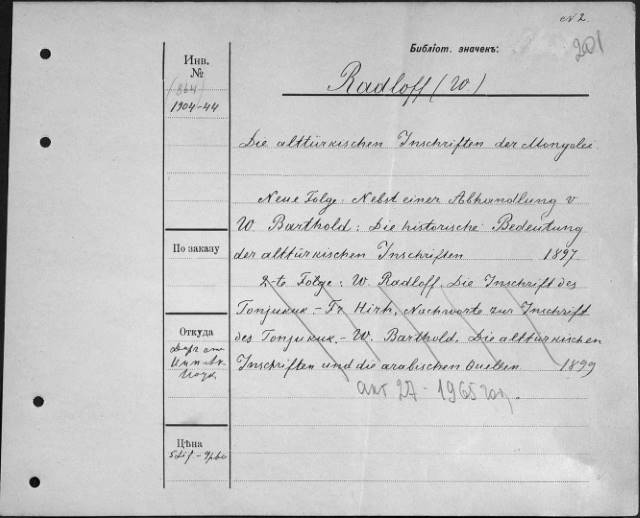 № 2.
Библіот. значекъ: 201
Инв.
№
(864)
1904-44
Radloff (W)
Die alttürkischen Inschriften der Mongolei
Neue Folge: Nebst einer Abhandlung v
W. Barthold: Die historische Bedeutung
der alttürkischen Inschriften 1897
2-te Folge: W. Radloff. Die Inschrift des
Tonjukuk. - Fr Hirth, Nachworte zur Inschrift
des Tonjukuk. - W. Barthold. Die alttürkischen
Inschriften und die arabischen Quellen 1899
акт 27 - 1965 год.
По заказу
Откуда
Даръ от
Цѣна